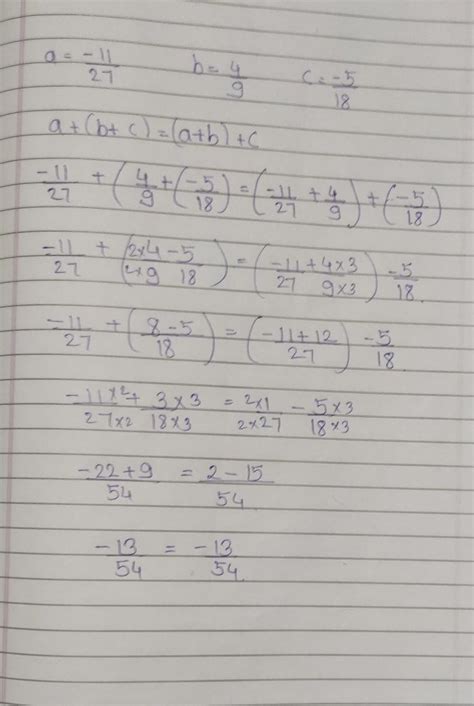 a = -11/27 b = 4/9 c = -5/18
a + (b + c) = (a + b) + c
-11/27 + (4/9 + (-5/18) = (-11/27 + 4/9) + (-5/18)
-11/27 + (2×4/2×9 - 5/18) = (-11/27 + 4×3/9×3) - 5/18
-11/27 + (8-5/18) = (-11+12/27) - 5/18
-11×2/27×2 + 3×3/18×3 = 2×1/2×27 - 5×3/18×3
-22+9/54 = 2-15/54
-13/54 = -13/54